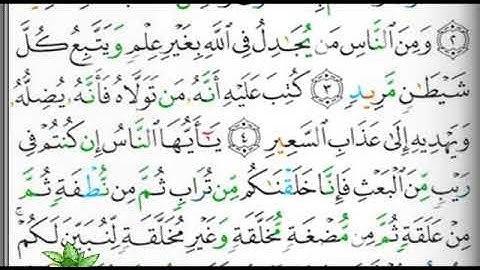 ۝٢ وَمِنَ ٱلنَّاسِ مَن يُجَٰدِلُ فِي ٱللَّهِ بِغَيۡرِ عِلۡمٖ وَيَتَّبِعُ كُلَّ
شَيۡطَٰنٖ مَّرِيدٖ ۝٣ كُتِبَ عَلَيۡهِ أَنَّهُۥ مَن تَوَلَّاهُ فَأَنَّهُۥ يُضِلُّهُۥ
وَيَهۡدِيهِ إِلَىٰ عَذَابِ ٱلسَّعِيرِ ۝٤ يَٰٓأَيُّهَا ٱلنَّاسُ إِن كُنتُمۡ فِي
رَيۡبٖ مِّنَ ٱلۡبَعۡثِ فَإِنَّا خَلَقۡنَٰكُم مِّن تُرَابٖ ثُمَّ مِن نُّطۡفَةٖ ثُمَّ
مِنۡ عَلَقَةٖ ثُمَّ مِن مُّضۡغَةٖ مُّخَلَّقَةٖ وَغَيۡرِ مُخَلَّقَةٖ لِّنُبَيِّنَ لَكُمۡۚ